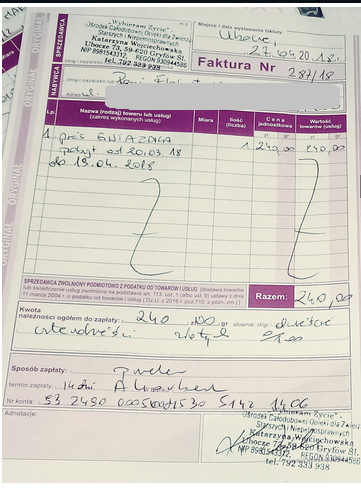 ORYGINAŁ
SPRZEDAWCA
"Wybieram Życie"
Ośrodek Całodobowej Opieki dla Zwierząt
Starszych i Niepełnosprawnych
Katarzyna Wojciechowska
Ubocze 73, 59-620 Gryfów Śl.
NIP 8981543312, REGON 930944586
tel. 792 333 938
Miejsce i data wystawienia faktury:
Ubocze,
27.04.2018 r.
Faktura Nr
287/18
NABYWCA
Lp.
Nazwa (rodzaj) towaru lub usługi
(zakres wykonanych usług)
Miara
Ilość
(liczba)
Cena
jednostkowa
Wartość
towarów (usług)
1. pies GWIAZDKA 1 240,00 240,00
pobyt od 20.03.18
do 19.04.2018
SPRZEDAWCA ZWOLNIONY PODMIOTOWO Z PODATKU OD TOWARÓW I USŁUG (dostawa towarów
lub świadczenie usług zwolnione na podstawie art. 113 ust. 1 (albo ust. 9) ustawy z dnia
11 marca 2004 r. o podatku od towarów i usług (Dz.U. z 2016 r. poz.710, z późn. zm.)
Razem:
240,00
Kwota
należności ogółem do zapłaty: 240,00 gr słownie: zł/gr dwieście
czterdzieści złotych 0/100
Sposób zapłaty:
termin zapłaty: 14 dni
Nr konta:
5142 1406
Adnotacje:
"Wybieram Życie"
Ośrodek Całodobowej Opieki dla Zwierząt
Starszych i Niepełnosprawnych
Katarzyna Wojciechowska
Ubocze 73, 59-620 Gryfów Śl.
NIP 8981543312, REGON 930944586
tel. 792 333 938